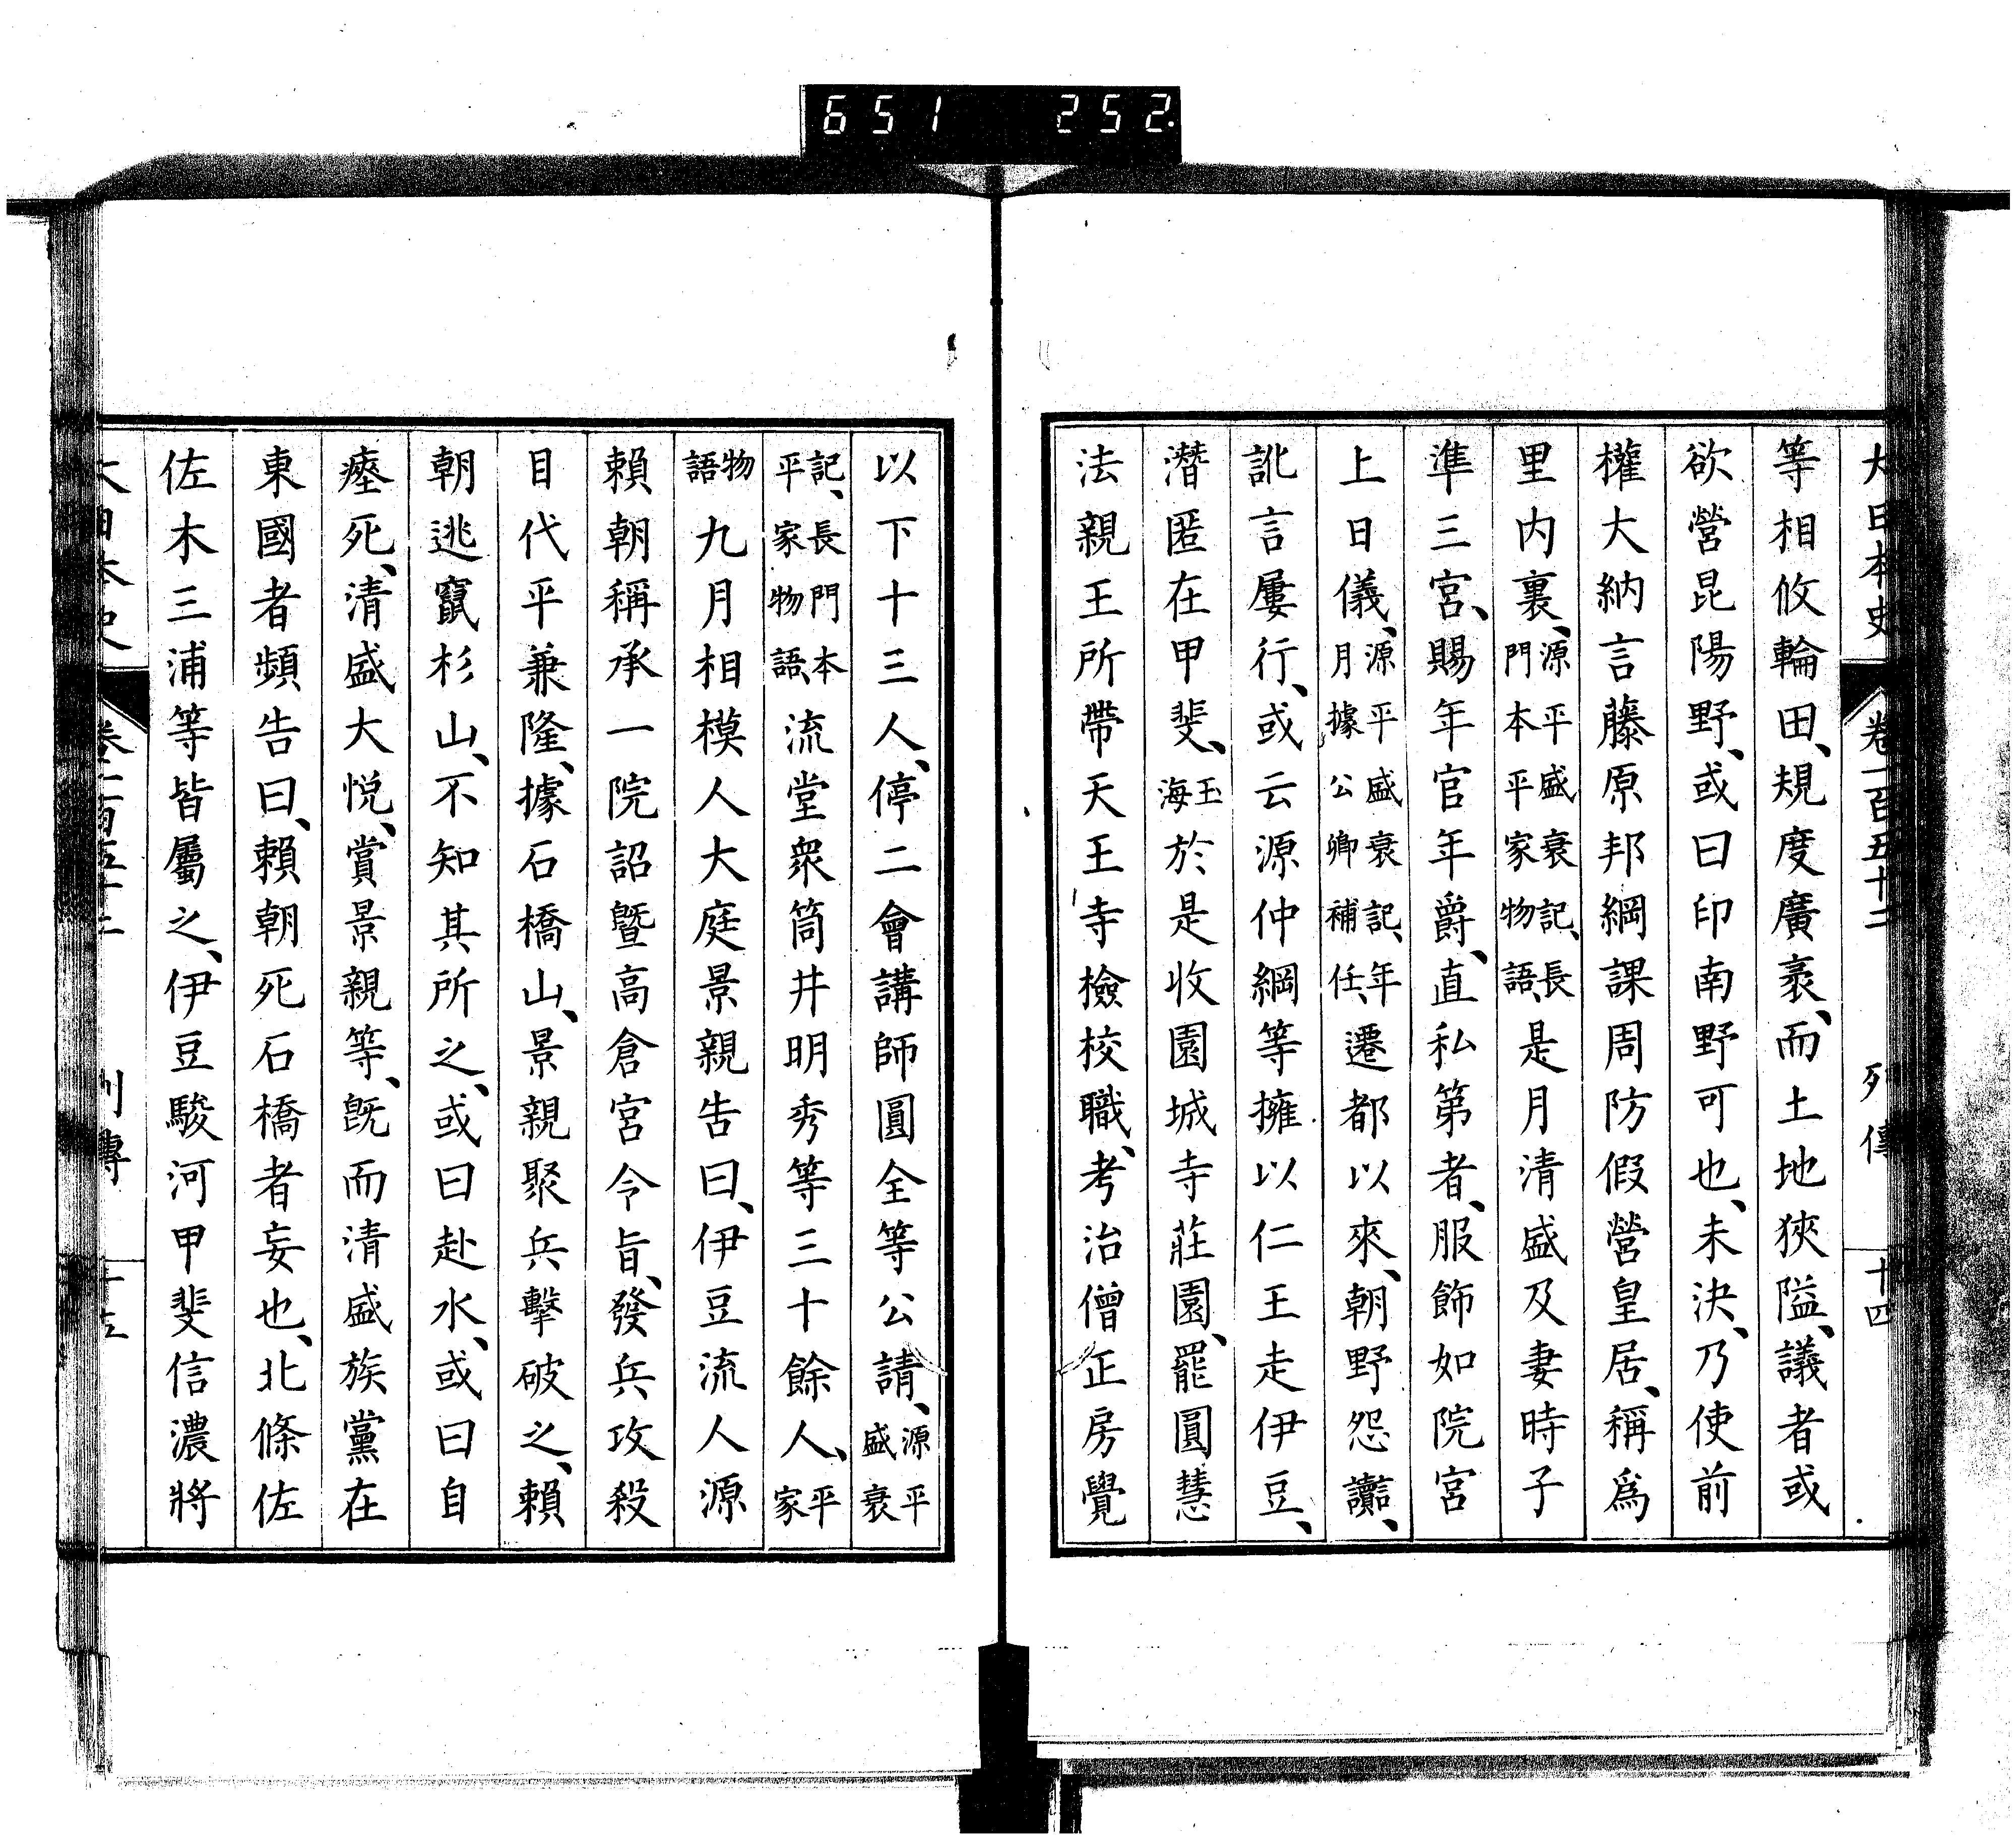 651 252
大日本史 卷一百五十二 列傳 十四
等相攸輪田、規度廣袤、而土地狹隘、議者或
欲營昆陽野、或曰印南野可也、未決、乃使前
權大納言藤原邦綱課周防假營皇居、稱爲
里内裏、源平盛衰記、長門本平家物語、是月清盛及妻時子
準三宮、賜年官年爵、直私第者、服飾如院宮
上日儀、源平盛衰記、年月據公卿補任、遷都以來、朝野怨讟、
訛言屢行、或云源仲綱等擁以仁王走伊豆、
潛匿在甲斐、玉海於是收園城寺莊園、罷圓慧
法親王所帶天王寺檢校職、考治僧正房覺
以下十三人、停二會講師圓全等公請、源平盛衰
記、長門本平家物語、流堂衆筒井明秀等三十餘人、平家
物語九月相模人大庭景親告曰、伊豆流人源
賴朝稱承一院詔曁高倉宮令旨、發兵攻殺
目代平兼隆、據石橋山、景親聚兵擊破之、賴
朝逃竄杉山、不知其所之、或曰赴水、或曰自
瘞死、清盛大悅、賞景親等、旣而清盛族黨在
東國者頻告曰、賴朝死石橋者妄也、北條佐
佐木三浦等皆屬之、伊豆駿河甲斐信濃將
大日本史 卷一百五十二 列傳 十五